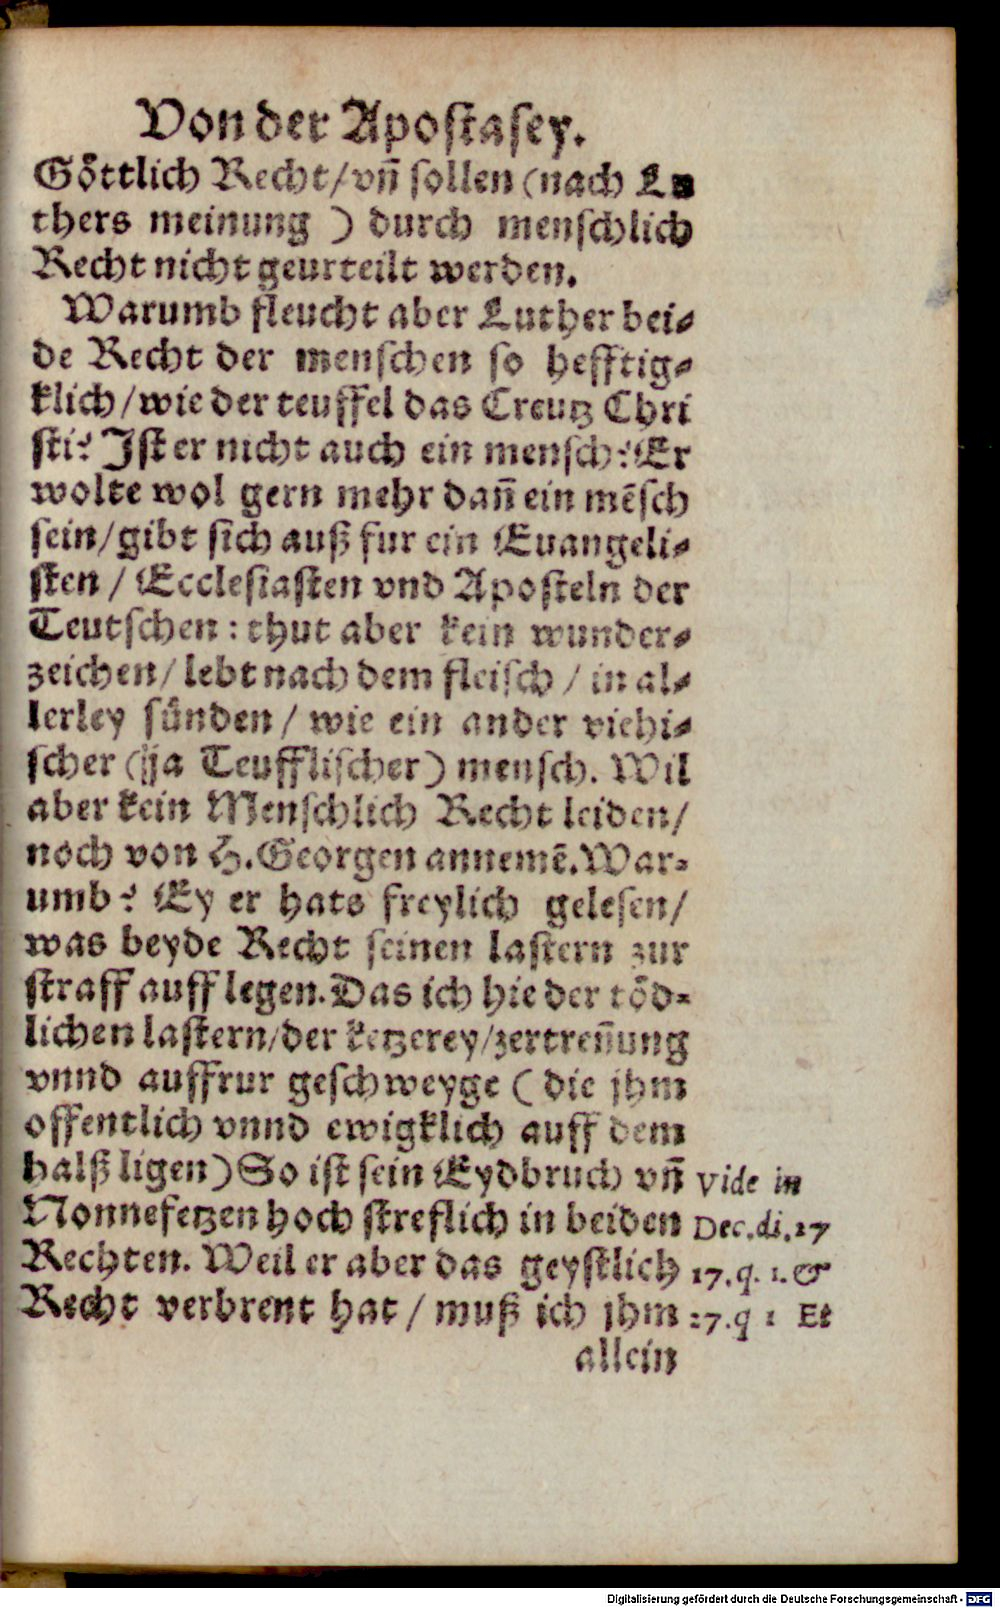 Von der Apostasey.
Göttlich Recht/vñ sollen (nach Lu
thers meinung ) durch menschlich
Recht nicht geurteilt werden.
Warumb fleucht aber Luther bei-
de Recht der menschen so hefftig-
klich/wie der teuffel das Creutz Chri
sti? Ist er nicht auch ein mensch?Er
wolte wol gern mehr dañ ein mẽsch
sein/gibt sich auß fur ein Euangeli-
sten / Ecclesiasten vnd Aposteln der
Teutschen : thut aber kein wunder-
zeichen/ lebt nach dem fleisch / in al-
lerley sünden / wie ein ander viehi-
scher (ja Teufflischer) mensch. Wil
aber kein Menschlich Recht leiden/
noch von H.Georgen annemẽ.War-
umb? Ey er hats freylich gelesen/
was beyde Recht seinen lastern zur
straff auff legen.Das ich hie der töd-
lichen lastern/der ketzerey/zertreñung
vnnd auffrur geschweyge ( die jhm
offentlich vnnd ewigklich auff dem
halß ligen) So ist sein Eydbruch vñ
Nonnefetzen hoch streflich in beiden
Rechten. Weil er aber das geystlich
Recht verbrent hat / muß ich jhm
allein
Vide in
Dec.di.27
17.q. 1.&
27.q 1 Et
Digitalisierung gefördert durch die Deutsche Forschungsgemeinschaft - DFG